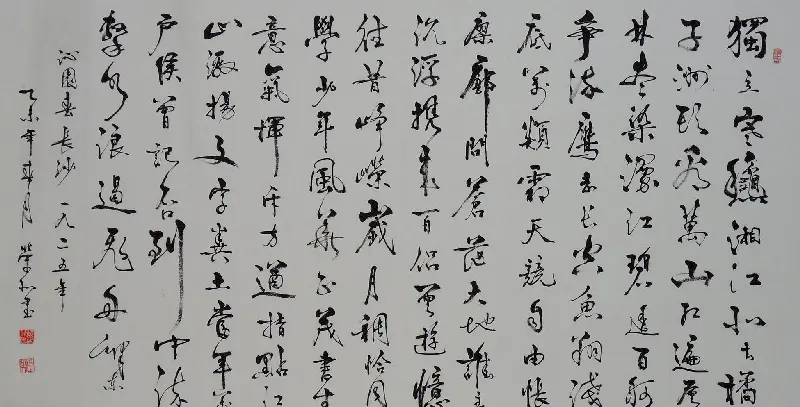 獨立寒龝湘江北去橘
子洲頭看萬山红遍层
林盡染漫江碧透百舸
爭流鷹击長空魚翔淺
底萬類霜天競自由悵
寥廓問蒼茫大地誰主
沉浮携来百侣曾遊憶
往昔崢嶸歲月稠恰同
學少年風華正茂書生
意氣揮斥方遒指點江
山激揚文字糞土當年萬
户侯曾記否到中流
擊水浪遏飛舟
沁園春長沙 一九二五年
乙未年 月 榮和書